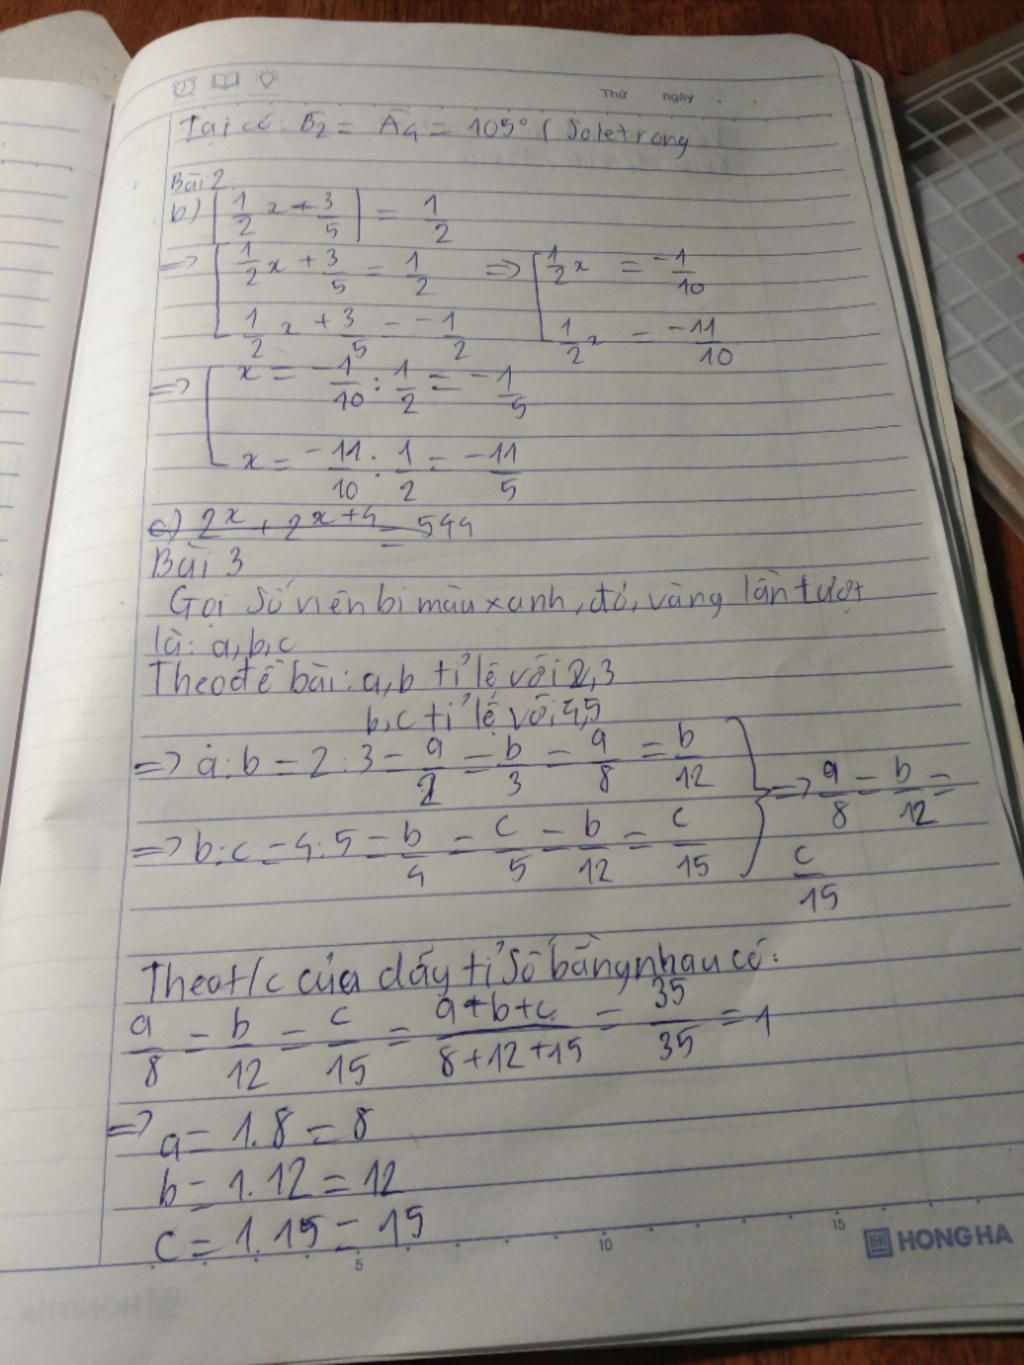 Thứ ngày
Tại có: B₂ = A₄ = 105° ( Soletrong
Bài 2:
b) | 1/2 x + 3/5 | = 1/2
=> [ 1/2 x + 3/5 = 1/2 => [ 1/2 x = -1/10
1/2 x + 3/5 = -1/2 1/2 x = -11/10
=> [ x = -1/10 : 1/2 = -1/5
x = -11/10 : 1/2 = -11/5
c) 2^x + 2^x+4 = 544
Bài 3
Gọi Số viên bi màu xanh, đỏ, vàng lần lượt
là: a, b, c
Theo đề bài: a, b tỉ lệ với 2, 3
b, c tỉ lệ với 4, 5
=> a : b = 2 : 3 = a/2 = b/3 = a/8 = b/12 } => a/8 = b/12 =
=> b : c = 4 : 5 = b/4 = c/5 = b/12 = c/15 c/15
Theo t/c của dãy tỉ số bằng nhau có:
a/8 = b/12 = c/15 = a+b+c/8+12+15 = 35/35 = 1
=> a = 1.8 = 8
b = 1.12 = 12
c = 1.15 = 15
5 10 15 HONG HA